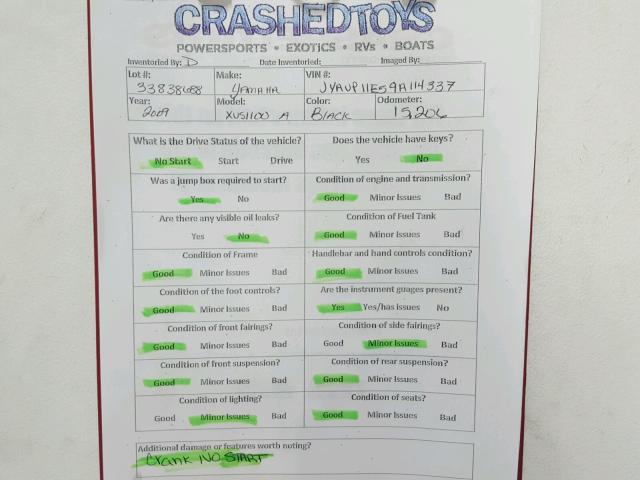 CRASHEDTOYS
POWERSPORTS • EXOTICS • RVs • BOATS
Inventoried By: D Date Inventoried: Imaged By:
Lot #: Make: VIN #:
33838688 YAMAHA JYAVP11E59A114337
Year: Model: Color: Odometer:
2009 XVS1100 A BLACK 15,206
What is the Drive Status of the vehicle? Does the vehicle have keys?
No Start Start Drive Yes No
Was a jump box required to start? Condition of engine and transmission?
Yes No Good Minor Issues Bad
Are there any visible oil leaks? Condition of Fuel Tank
Yes No Good Minor Issues Bad
Condition of Frame Handlebar and hand controls condition?
Good Minor Issues Bad Good Minor Issues Bad
Condition of the foot controls? Are the instrument guages present?
Good Minor Issues Bad Yes Yes/has issues No
Condition of front fairings? Condition of side fairings?
Good Minor Issues Bad Good Minor Issues Bad
Condition of front suspension? Condition of rear suspension?
Good Minor Issues Bad Good Minor Issues Bad
Condition of lighting? Condition of seats?
Good Minor Issues Bad Good Minor Issues Bad
Additional damage or features worth noting?
Crank NO START